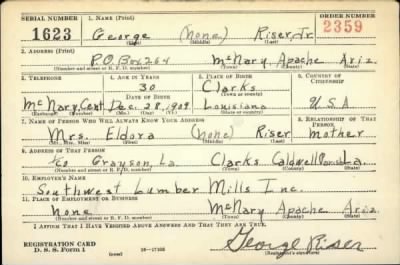 SERIAL NUMBER 1. NAME (Print) ORDER NUMBER
1623 George (none) Riser, Jr. 2359
(First) (Middle) (Last)
2. ADDRESS (Print)
P.O. Box 264 McNary, Apache Ariz.
(Number and street or R. F. D. number) (Town) (County) (State)
3. TELEPHONE 4. AGE IN YEARS 5. PLACE OF BIRTH 6. COUNTRY OF CITIZENSHIP
30 Clarks
DATE OF BIRTH (Town or county)
McNary, Cent. Dec. 28, 1909 Louisiana U.S.A.
(Exchange) (Number) (Mo.) (Day) (Yr.) (State or country)
7. NAME OF PERSON WHO WILL ALWAYS KNOW YOUR ADDRESS 8. RELATIONSHIP OF THAT PERSON
Mrs. Eldora (none) Riser mother
(Mr., Mrs., Miss) (First) (Middle) (Last)
9. ADDRESS OF THAT PERSON
Grayson, La. Clarks Caldwell La.
(Number and street or R. F. D. number) (Town) (County) (State)
10. EMPLOYER'S NAME
Southwest Lumber Mills Inc.
11. PLACE OF EMPLOYMENT OR BUSINESS
none McNary Apache Ariz.
(Number and street or R. F. D. number) (Town) (County) (State)
I AFFIRM THAT I HAVE VERIFIED ABOVE ANSWERS AND THAT THEY ARE TRUE.
REGISTRATION CARD
D. S. S. Form 1 (over) George Riser
(Registrant's signature)